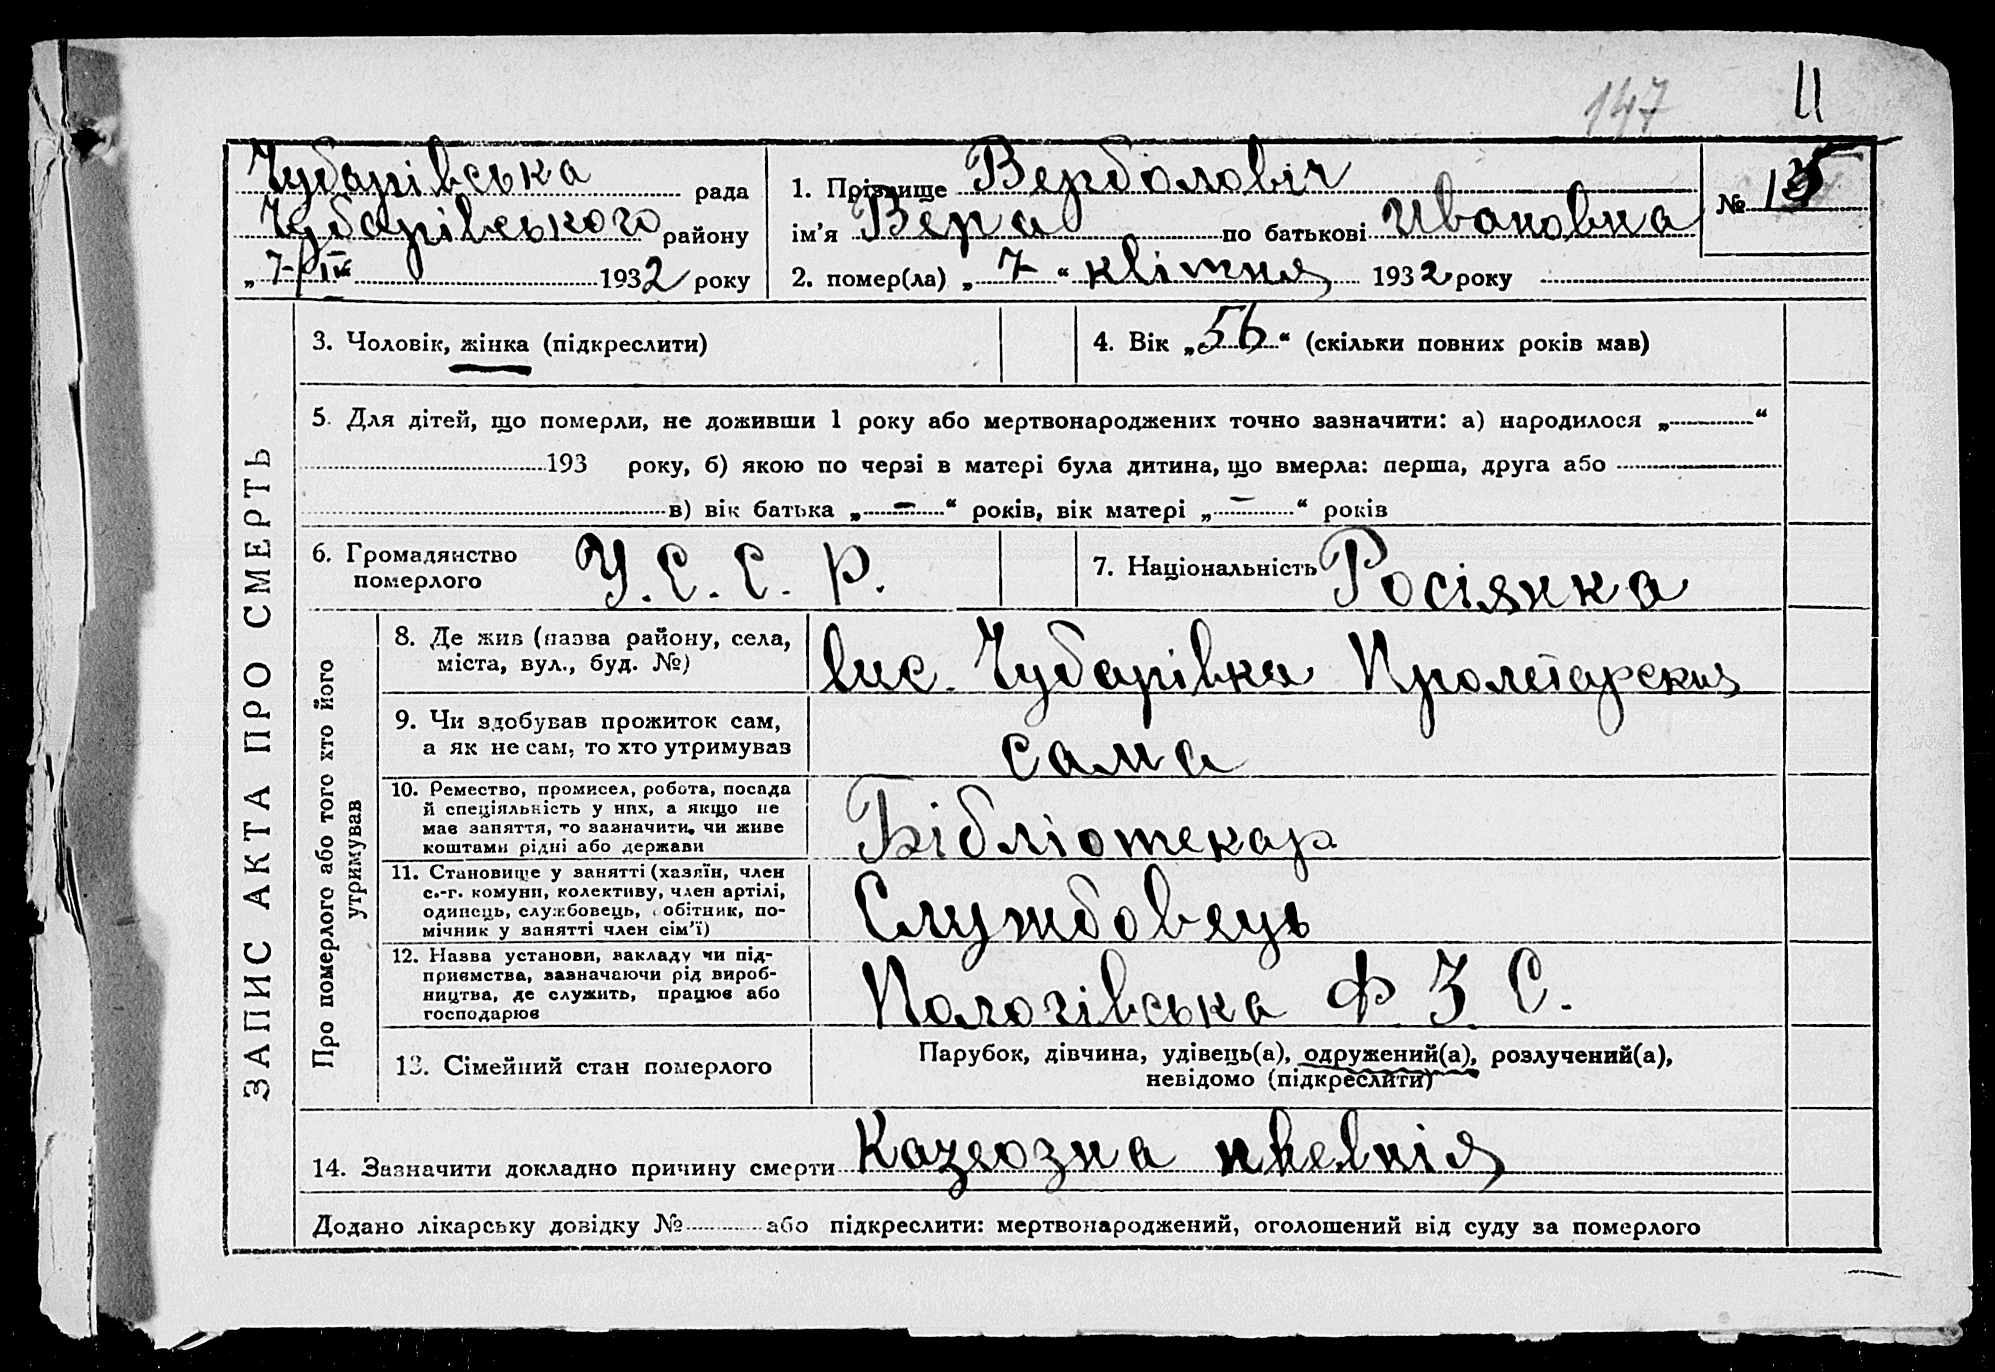 147 11
Чубарівська рада
Чубарівського району
„7-/IV 1932 року
1. Прізвище Верболовіч
ім'я Вера по батькові Ивановна
№ 15
2. помер(ла) „7“ квітня 1932 року
ЗАПИС АКТА ПРО СМЕРТЬ
3. Чоловік, жінка (підкреслити)
4. Вік „56“ (скільки повних років мав)
5. Для дітей, що померли, не доживши 1 року або мертвонароджених точно зазначити: а) народилося „ “
193 року, б) якою по черзі в матері була дитина, що вмерла: перша, друга або
в) вік батька „-“ років, вік матері „-“ років
6. Громадянство
померлого
У. С. С. Р.
7. Національність Росіянка
Про померлого або того хто його
утримував
8. Де жив (назва району, села,
міста, вул., буд. №)
вис. Чубарівка Пролетарская
9. Чи здобував прожиток сам,
а як не сам, то хто утримував
сама
10. Ремество, промисел, робота, посада
й спеціяльність у них, а якщо не
мав заняття, то зазначити, чи живе
коштами рідні або держави
Бібліотекар
11. Становище у занятті (хазяїн, член
с.-г. комуни, колективу, член артілі,
одинець, службовець, робітник, по-
мічник у занятті член сім'ї)
Службовець
12. Назва установи, закладу чи під-
приємства, зазначаючи рід вироб-
ництва, де служить, працює або
господарює
Пологівська Ф. З. С.
13. Сімейний стан померлого
Парубок, дівчина, удівець(а), одружений(а), розлучений(а),
невідомо (підкреслити)
14. Зазначити докладно причину смерти Казеозна
Додано лікарську довідку № або підкреслити: мертвонароджений, оголошений від суду за померлого